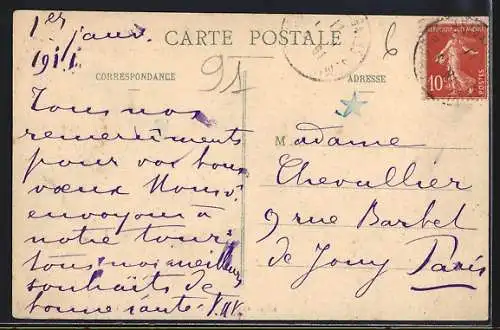 1er janv.
1911
CARTE POSTALE
CORRESPONDANCE
ADRESSE
94
6
REPUBLIQUE FRANÇAISE
10c
POSTES
Tous nos
remerciments
pour vos bons
vœux Nous v.
envoyons à
notre tour
tous nos meilleurs
souhaits de
bonne santé.
Madame
Chevallier
9 rue Barbet
de Jouy Paris